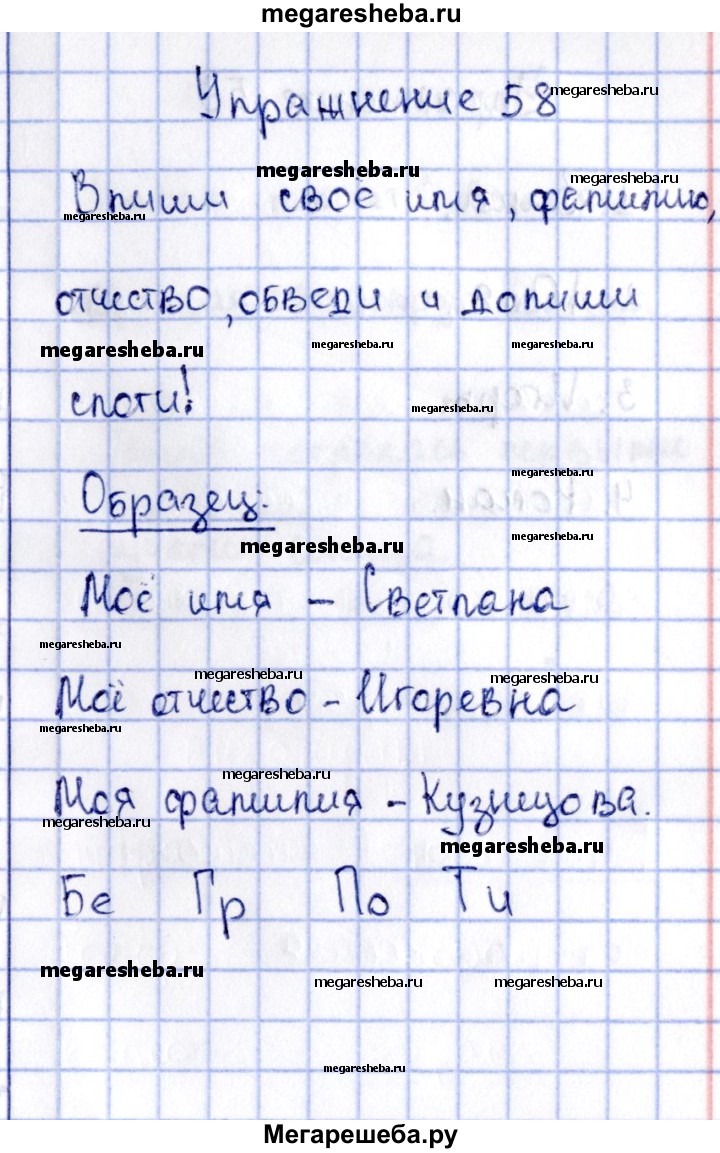 megaresheba.ru
Упражнение 58
megaresheba.ru
megaresheba.ru
megaresheba.ru
Впиши своё имя, фамилию,
megaresheba.ru
отчество, обведи и допиши
megaresheba.ru
megaresheba.ru
megaresheba.ru
слоги!
megaresheba.ru
megaresheba.ru
Образец:
megaresheba.ru
megaresheba.ru
Моё имя – Светлана
megaresheba.ru
megaresheba.ru
megaresheba.ru
Моё отчество – Игоревна
megaresheba.ru
megaresheba.ru
Моя фамилия – Кузнецова.
megaresheba.ru
megaresheba.ru
Бе Гр По Ти
megaresheba.ru
megaresheba.ru
megaresheba.ru
megaresheba.ru
Мегарешеба.ру